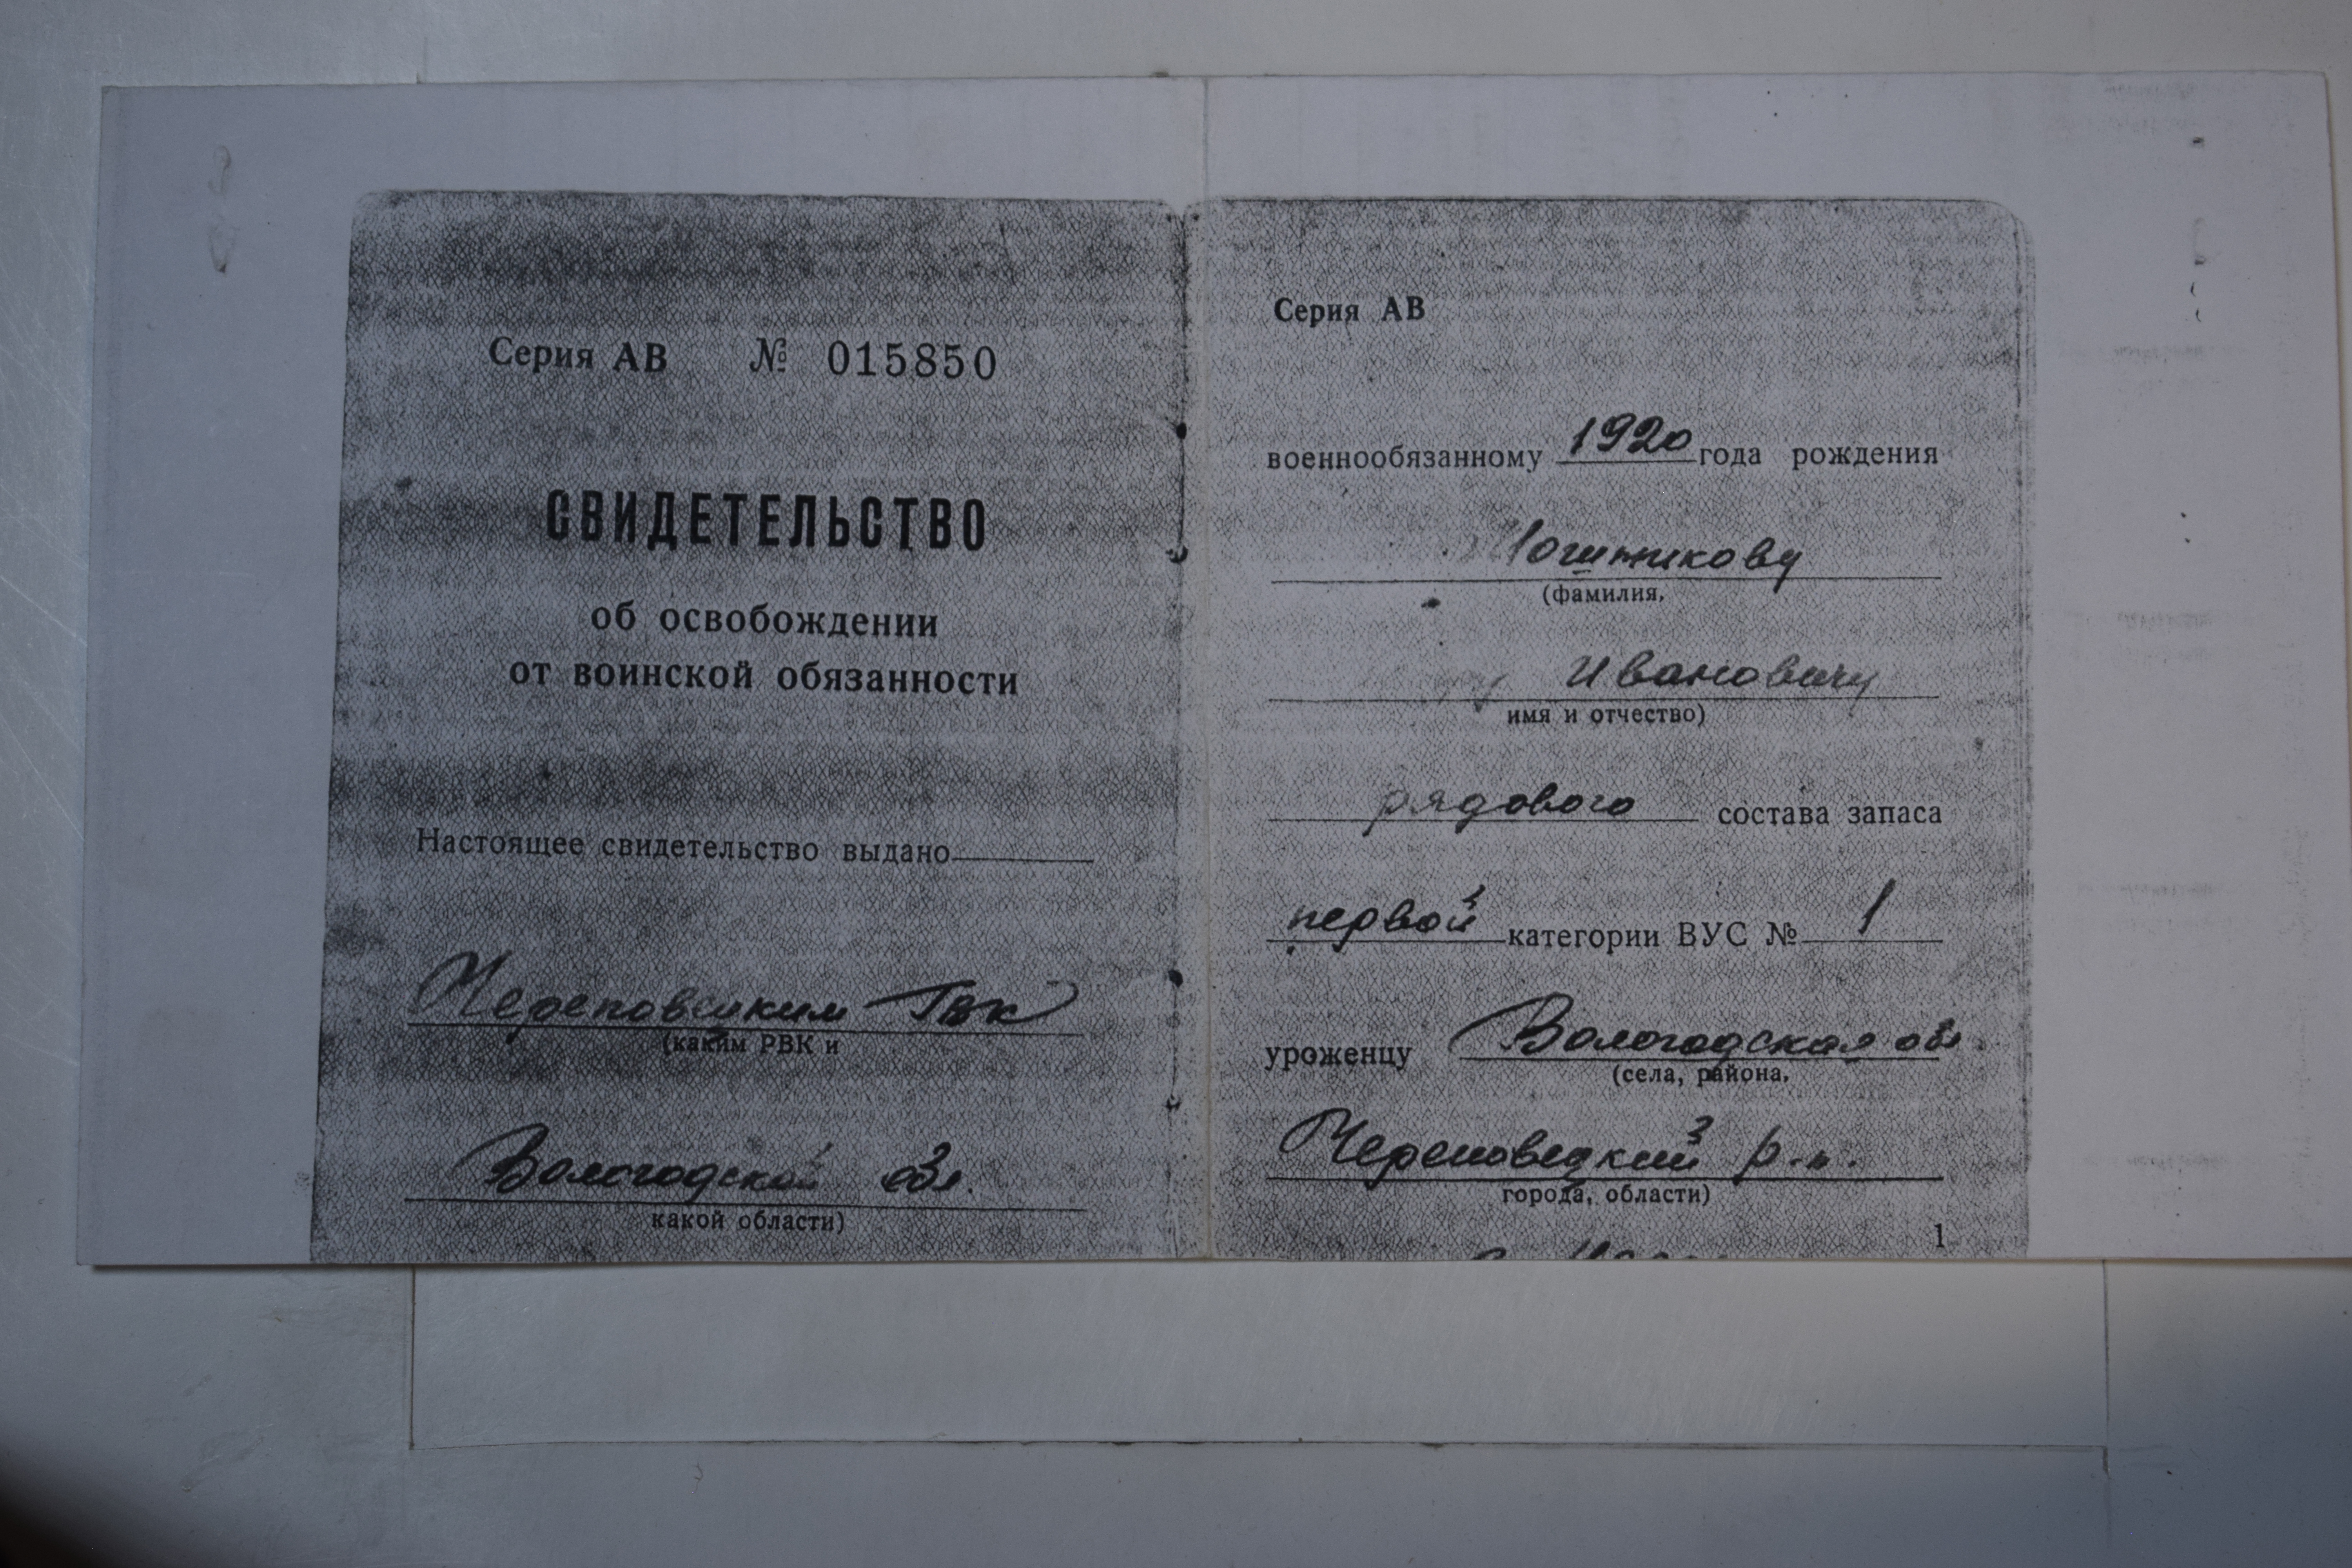 Серия АВ № 015850
СВИДЕТЕЛЬСТВО
об освобождении
от воинской обязанности
Настоящее свидетельство выдано
Череповецким ГВК
(каким РВК и
Вологодской обл.
какой области)
Серия АВ
военнообязанному 1920 года рождения
(фамилия,
Ивановичу
имя и отчество)
рядового состава запаса
первой категории ВУС № 1
уроженцу Вологодская обл.
(села, района,
Череповецкий р-н.
города, области)
1